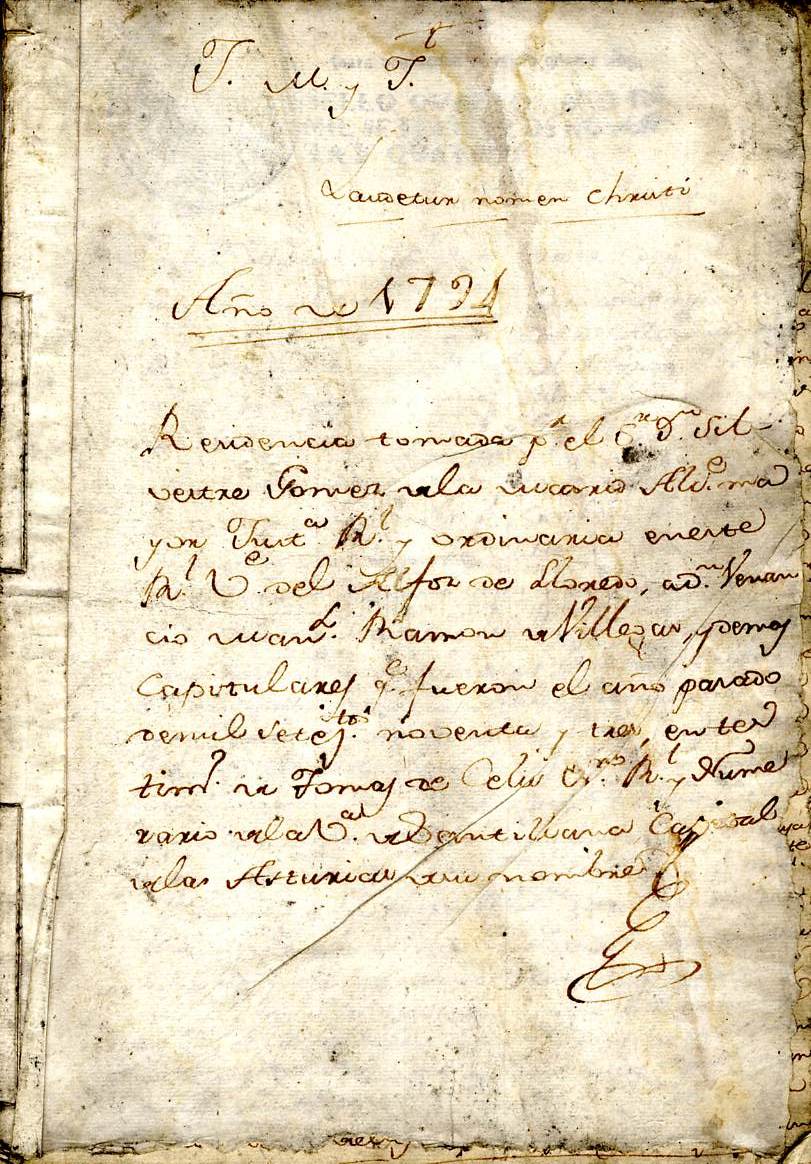 J. M. y J.
Laudetur nomen Christi
Año de 1794
Residencia tomada pr. el Sr. Dn. Sil-
vestre Gomez de la Alce. ma
yor Justa. Rl. y ordinaria en este
Rl. Ve. del Alfoz de Lloredo, a Dn. Venan
cio Manl. Ramon de Villegas, y demas
Capitulares qe. fueron el año pasado
de mil setejtos. noventa y tres, en tes
timo. de Tomas de Celis Esno. Rl. y Nume
rario de la Va. de Santillana Capital
de las Asturias de su nombre